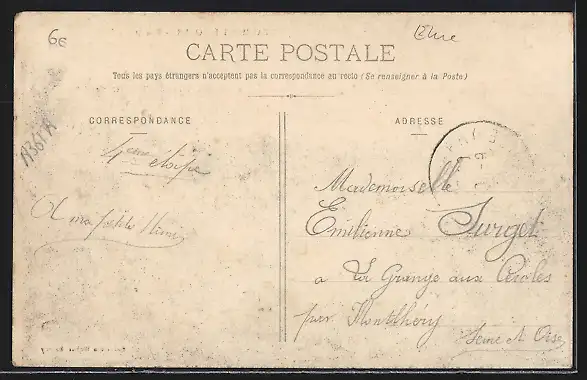 6€
Eure
CARTE POSTALE
Tous les pays étrangers n'acceptent pas la correspondance au recto (Se renseigner à la Poste)
CORRESPONDANCE
ADRESSE
A361A
4eme étape
A ma petite Mimi
Mademoiselle
Emilienne Surget
a La Grange aux Cercles
par Montlhéry
Seine et Oise